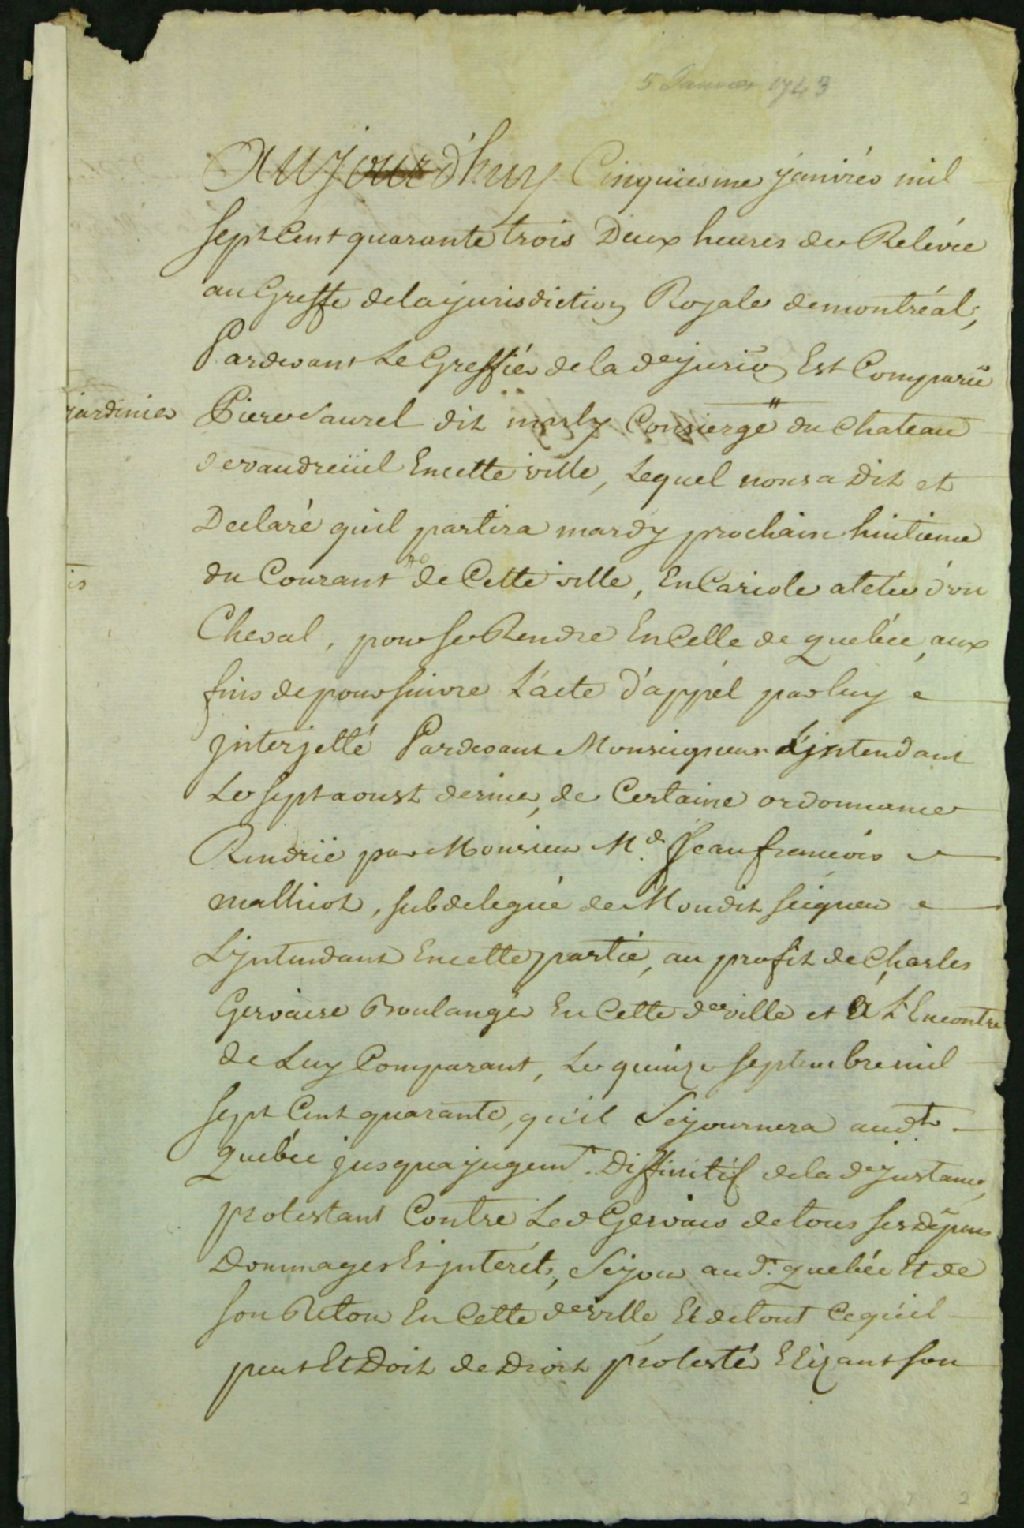 5 Janvier 1743
Aujourd'huy Cinquiesme janvier mil
sept Cent quarante trois Deux heures de Relevée
au Greffe de la jurisdiction Royale de montréal,
Pardevant Le Greffier de la de juri.on Est Comparu
jardinier
Piere Saurel dit Consierge du Chateau
de vaudreüil En cette ville, Lequel nous a Dit et
Declaré quil partira mardy prochain huitieme
du Courant de Cette ville, En Cariole atelée d'un
is
Cheval, pour se Rendre En Celle de quebéc, aux
fins de poursuivre L'acte d'appél par luy
jnterjetté Pardevant Monseigneur L'jntendant
Le sept aoust dernier, de Certaine ordonnance
Rendüe par Monsieur Me Jean françois
malhiot, subdelegué de Mondit seigneur
L'jntendant En cette partie, au profit de Charles
Gervaise Boulanger En Cette de ville et à L'Encontre
de Luy Comparant, Le quinze septembre mil
sept Cent quarante, qu'il Sejournera audt
quebéc jusqua jugemt. Diffinitif de la de jnstance,
protestant Contre Led Gervais de tous ses dépens
Dommages Et jnterets, Sejour aud. quebéc Et de
son Retour En Cette de ville, Et de tout Ce qu'il
peut Et Doit de Droit protesté Elizant son
2